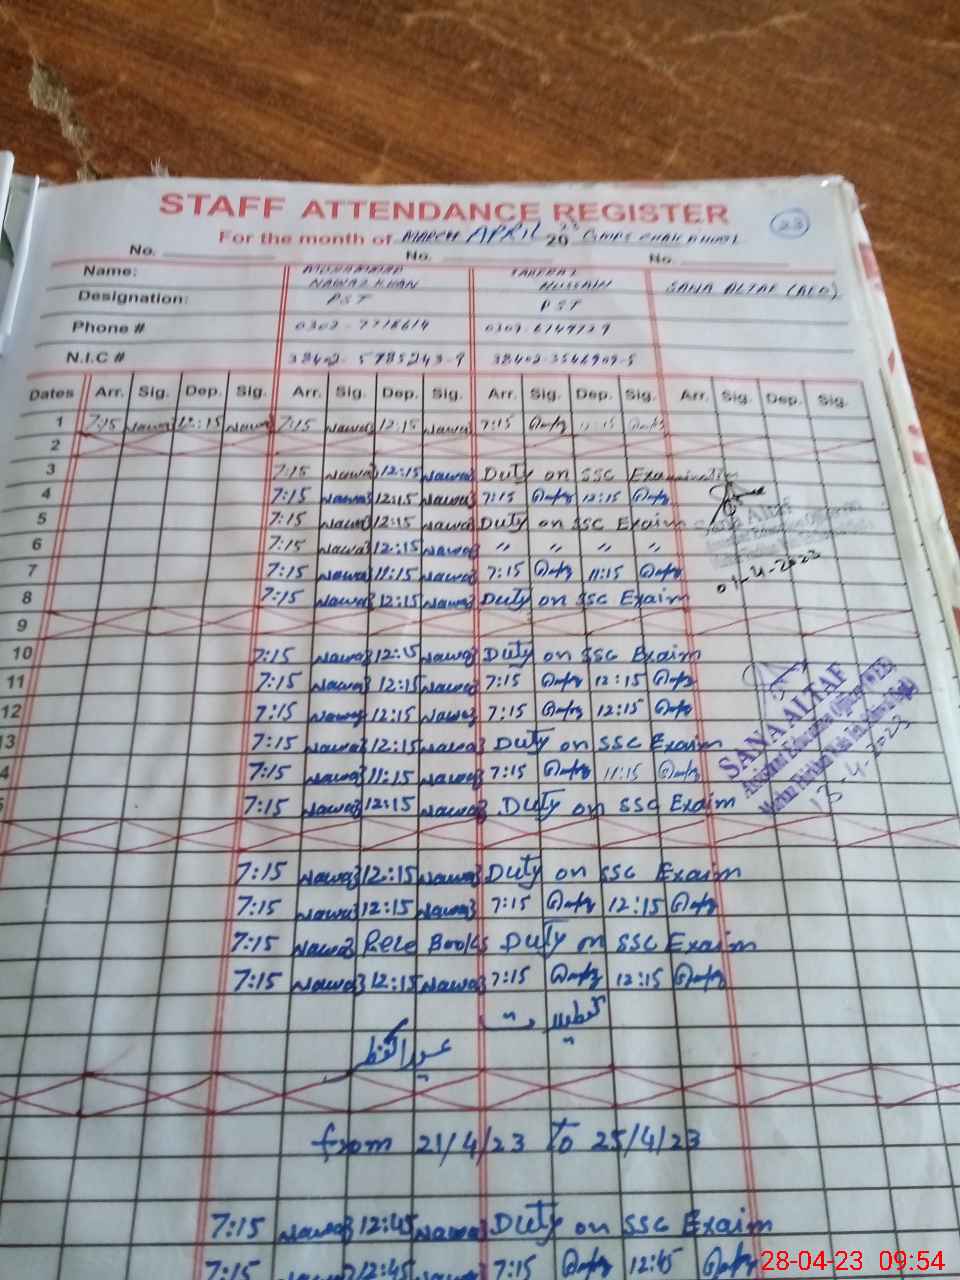 STAFF ATTENDANCE REGISTER
23
For the month of MARCH APRIL 2023
No. No. No.
Name: MUHAMMAD NAWAZ KHAN HUSSAIN SANA ALTAF (AEO)
Designation: PST PST
Phone #
N.I.C # 38402-5785243-9 38402-3546909-5
Dates Arr. Sig. Dep. Sig. Arr. Sig. Dep. Sig. Arr. Sig. Dep. Sig. Arr. Sig. Dep. Sig.
1 7:15 Nawaz 12:15 Nawaz 7:15 Nawaz 12:15 Nawaz 7:15
2
3 7:15 Nawaz 12:15 Nawaz Duty on SSC Examination
4 7:15 Nawaz 12:15 Nawaz 7:15 12:15
5 7:15 Nawaz 12:15 Nawaz Duty on SSC Exaim
6 7:15 Nawaz 12:15 Nawaz " " " "
7 7:15 Nawaz 11:15 Nawaz 7:15 11:15
8 7:15 Nawaz 12:15 Nawaz Duty on SSC Exaim
Sana Altaf
01-4-2023
9
10 7:15 Nawaz 12:15 Nawaz Duty on SSC Exaim
11 7:15 Nawaz 12:15 Nawaz 7:15 12:15
12 7:15 Nawaz 12:15 Nawaz 7:15 12:15
13 7:15 Nawaz 12:15 Nawaz Duty on SSC Exaim
4 7:15 Nawaz 11:15 Nawaz 7:15 11:15
5 7:15 Nawaz 12:15 Nawaz Duty on SSC Exaim
SANA ALTAF
Assistant Education Officer (WEE)
13-4-2023
7:15 Nawaz 12:15 Nawaz Duty on SSC Exaim
7:15 Nawaz 12:15 Nawaz 7:15 12:15
7:15 Nawaz Rece Books Duty on SSC Exaim
7:15 Nawaz 12:15 Nawaz 7:15 12:15
تعطیلات
عید الفطر
from 21/4/23 To 25/4/23
7:15 Nawaz 12:45 Nawaz Duty on SSC Exaim
7:15 Nawaz 12:45 Nawaz 7:15 12:45
28-04-23 09:54